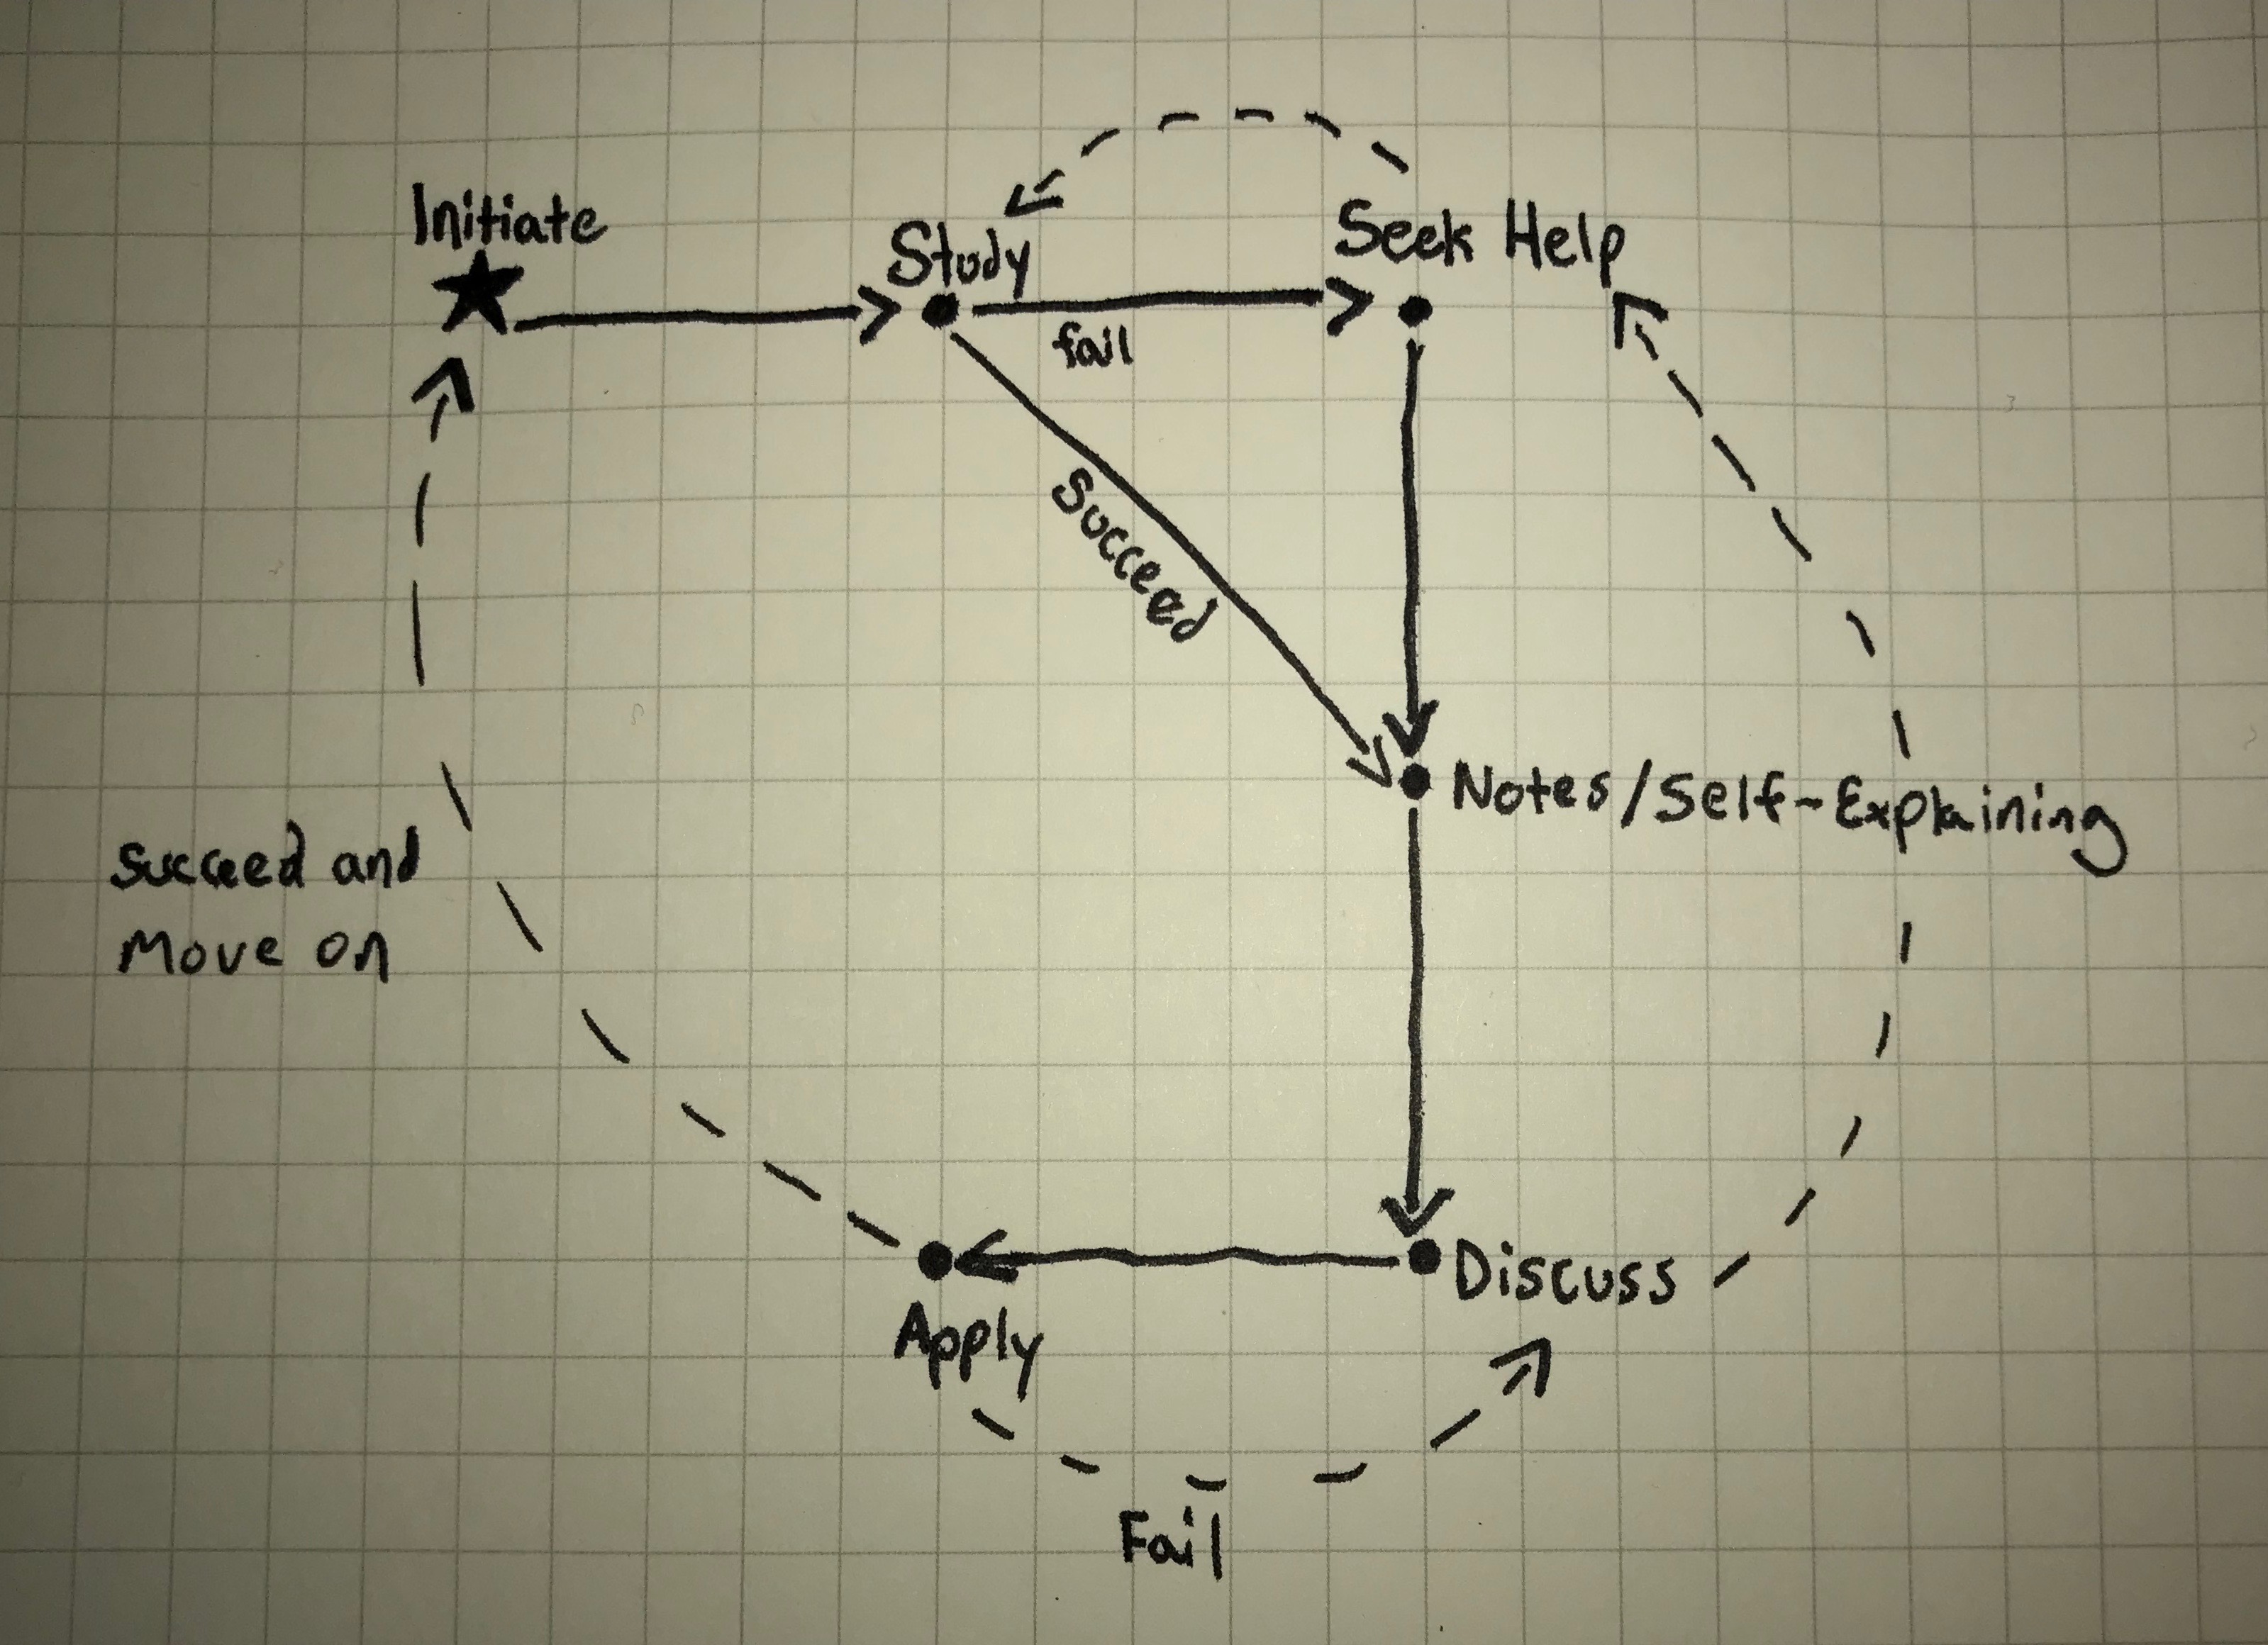 Initiate
Study
Seek Help
fail
Succeed
Notes/Self-Explaining
succeed and
Move on
Discuss
Apply
Fail